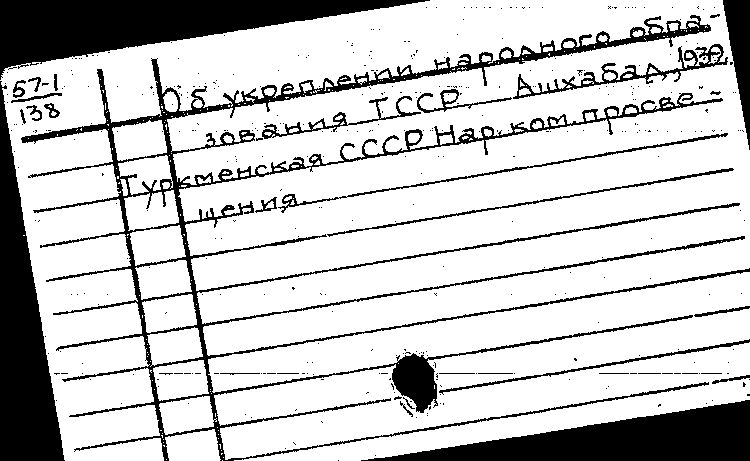 57-1
138
Об укреплении народного обра-
зования ТССР. Ашхабад, 1930.
Туркменская СССР Нар. ком. просве-
щения.